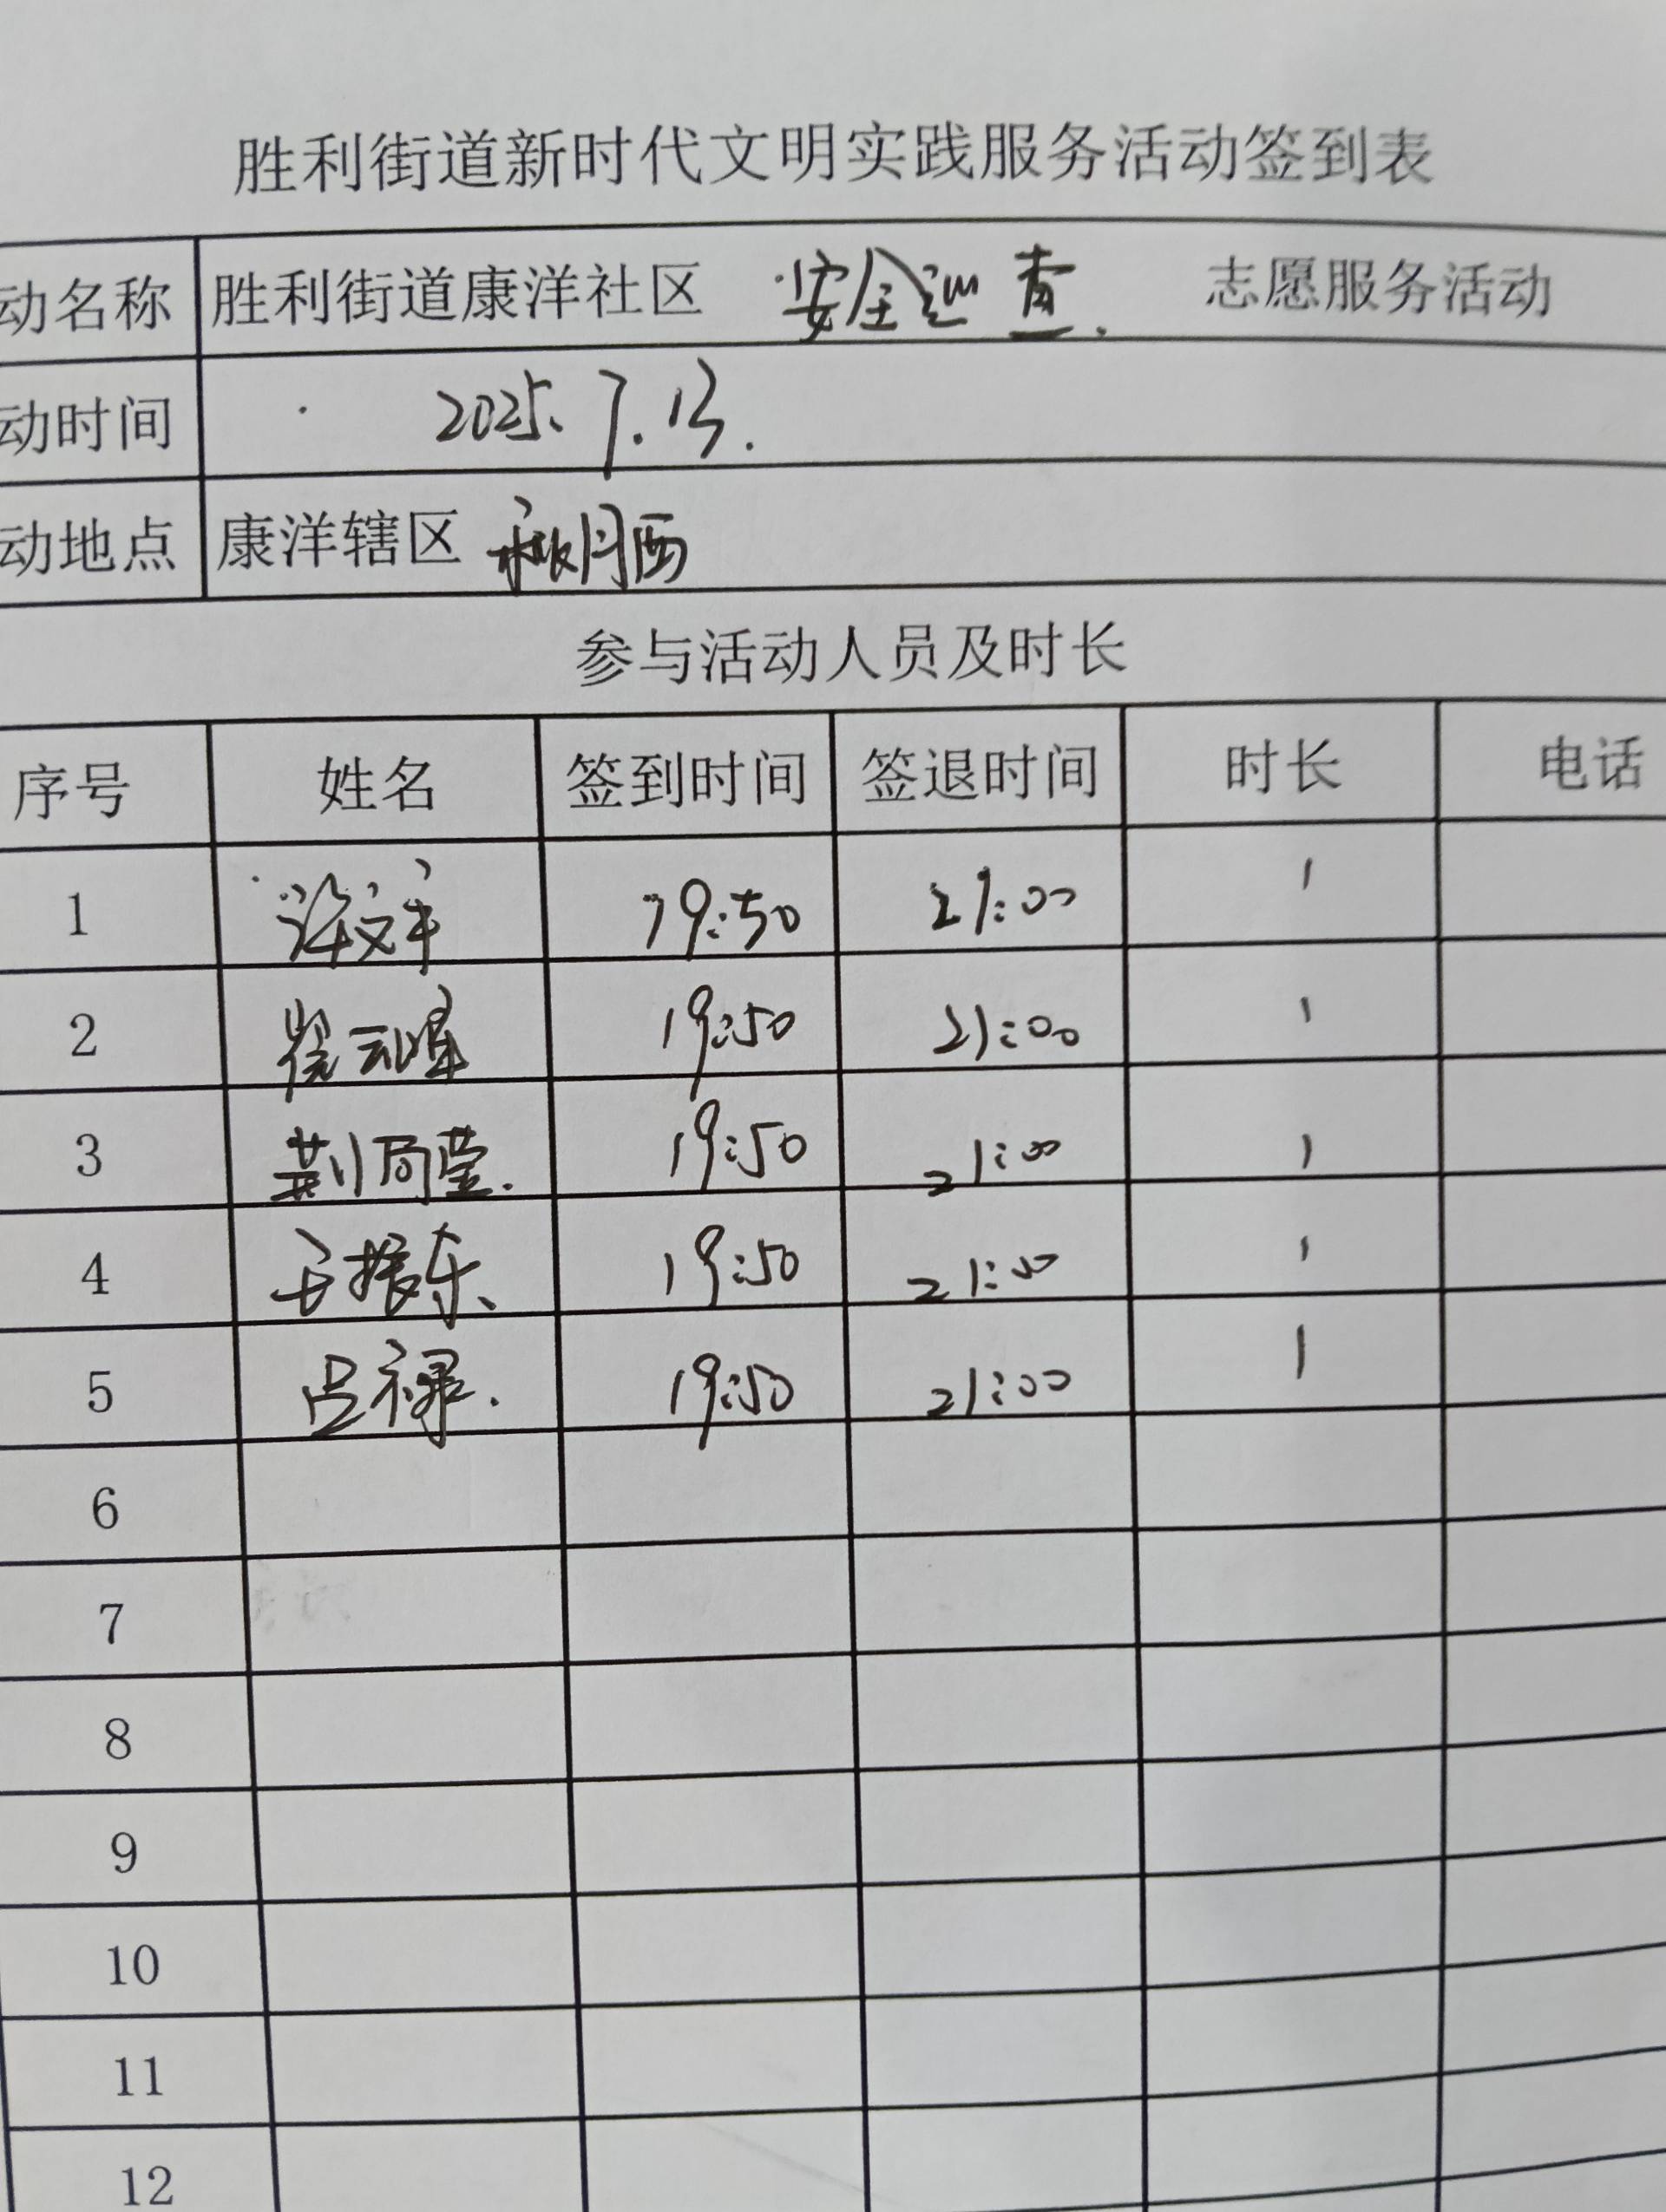 胜利街道新时代文明实践服务活动签到表
动名称 胜利街道康洋社区 安全巡查. 志愿服务活动
动时间 2025.7.13.
动地点 康洋辖区 月西
参与活动人员及时长
序号 姓名 签到时间 签退时间 时长 电话
1 19:50 21:00 1
2 19:50 21:00 1
3 荆 19:50 21:00 1
4 振东 19:50 21:00 1
5 吕禄. 19:50 21:00 1
6
7
8
9
10
11
12